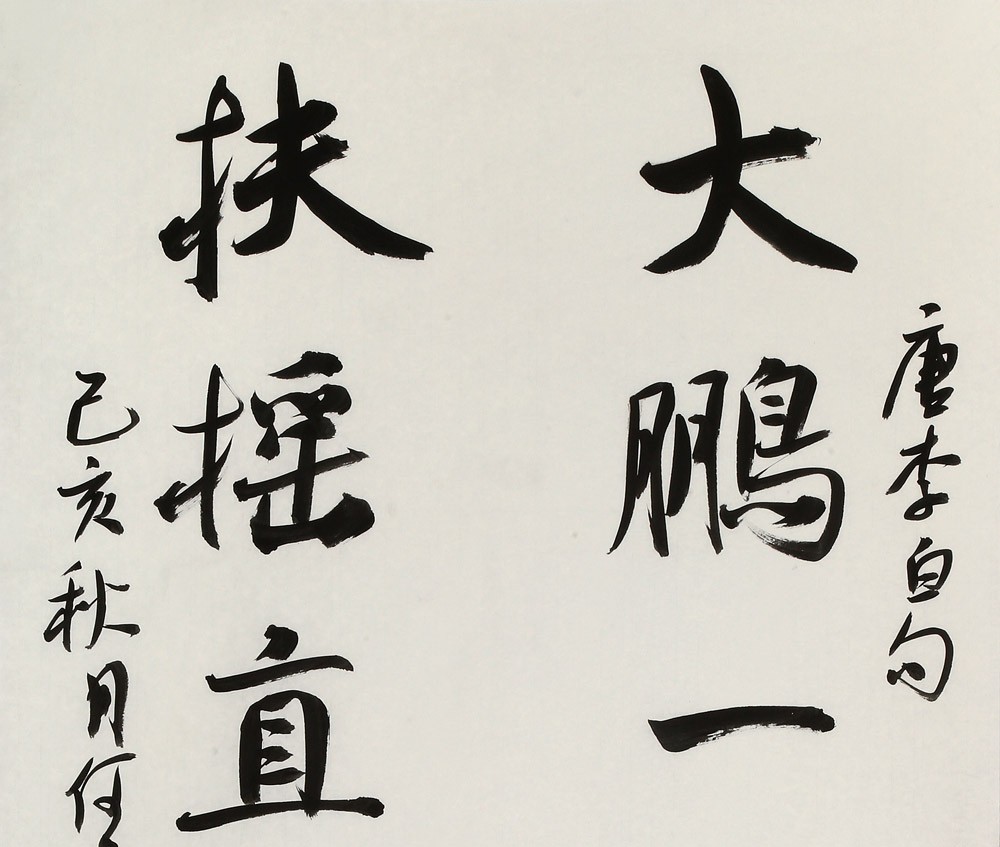 唐李白句
大鹏一
扶摇直
己亥秋月任